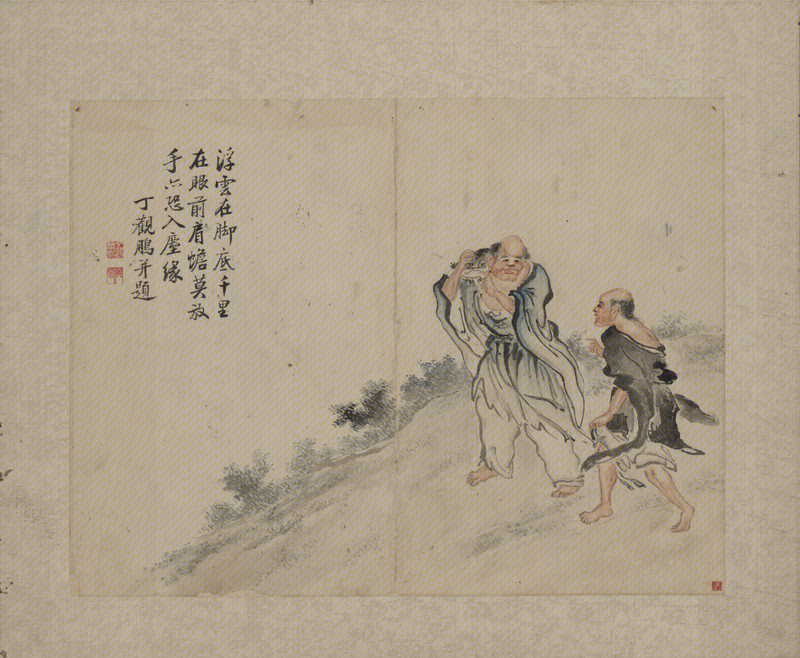 浮雲在脚底千里
在眼前肩蟾莫放
手亦恐入塵緣
丁觀鵬并題